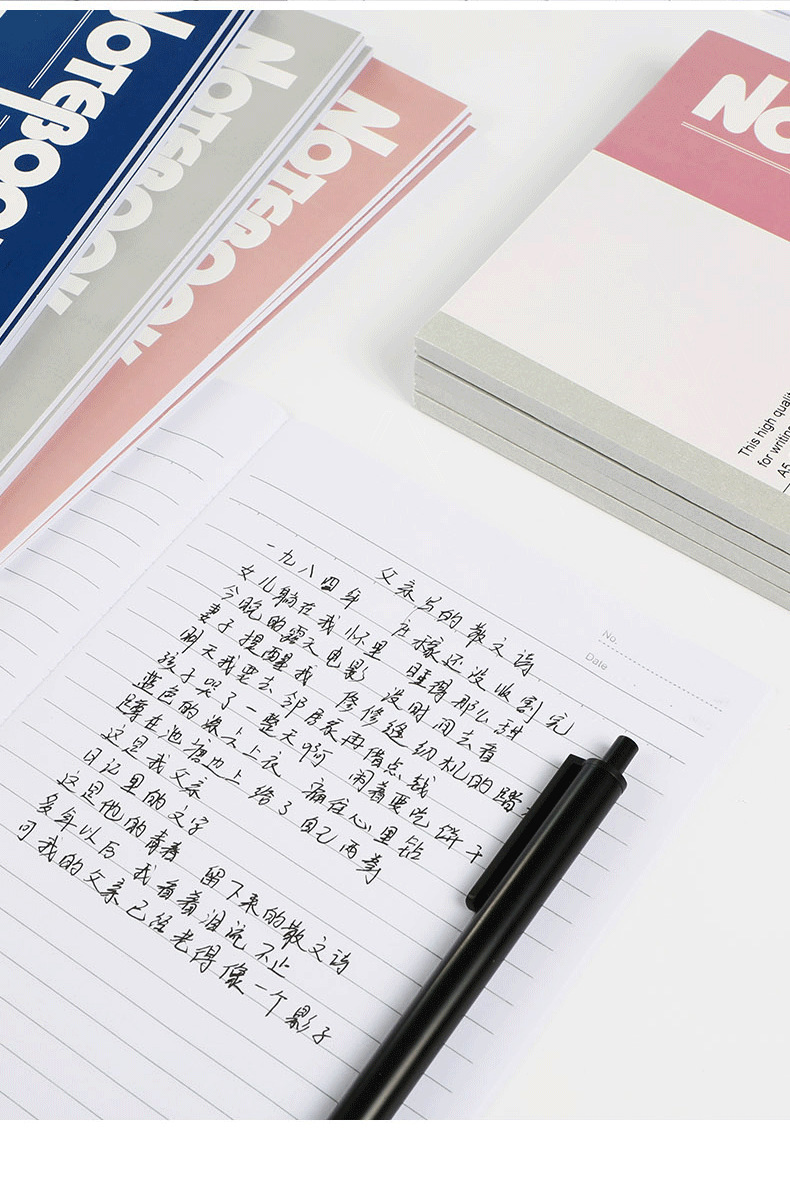 NOTEBOOK
NOTEBOOK
NOTEBOOK
No
This high quali
for writin
A5
No.
Date
父亲写的散文诗
一九八四年 庄稼还没收割完
女儿躺在我怀里 睡得那么甜
今晚的露天电影 没时间去看
妻子提醒我 修修缝纫机的踏
明天我要去 邻居家再借点钱
孩子哭了一整天啊 闹着要吃饼干
蓝色的涤卡上衣 痛往心里钻
蹲在池塘边上 给了自己两拳
这是我父亲
日记里的文字
这是他的青春 留下来的散文诗
多年以后 我看着泪流不止
可我的父亲已经老得像一个影子